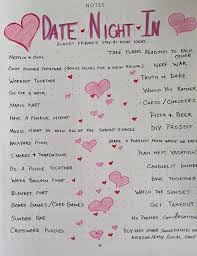 NOTES
DATE · NIGHT · IN
BUDGET FRIENDLY STAY AT HOME IDEAS
NETFLIX & CHILL
TAKE TURNS READING TO EACH OTHER
COOK DINNER TOGETHER (BONUS POINTS FOR A NEW RECIPE)
NERF WAR
WORKOUT TOGETHER
TRUTH OR DARE
GO FOR A WALK
WOULD YOU RATHER
MARIO KART
CHESS / CHECKERS
HAVE A FONDUE NIGHT
PIZZA & BEER
MOVIE NIGHT IN WITH ALL THE SNACKY-SNACKS
DIY PROJECT
BACKYARD PICNIC
MAKE A PLAYLIST FROM WHEN WE DATED
S'MORES & TENT
PLAN NEXT "VACATION"
DO A PUZZLE TOGETHER
CANDLELIT DINNER
WATER BALLOON FIGHT
BAKE TOGETHER
BLANKET FORT
WATCH THE SUNSET
BOARD GAMES / CARD GAMES
GET TAKEOUT
SUNDAE BAR
NO PHONES CONVERSATION
CROSSWORD PUZZLES
BUY EACH OTHER SOMETHING ON
AMAZON / ETSY / LOCAL SHOP